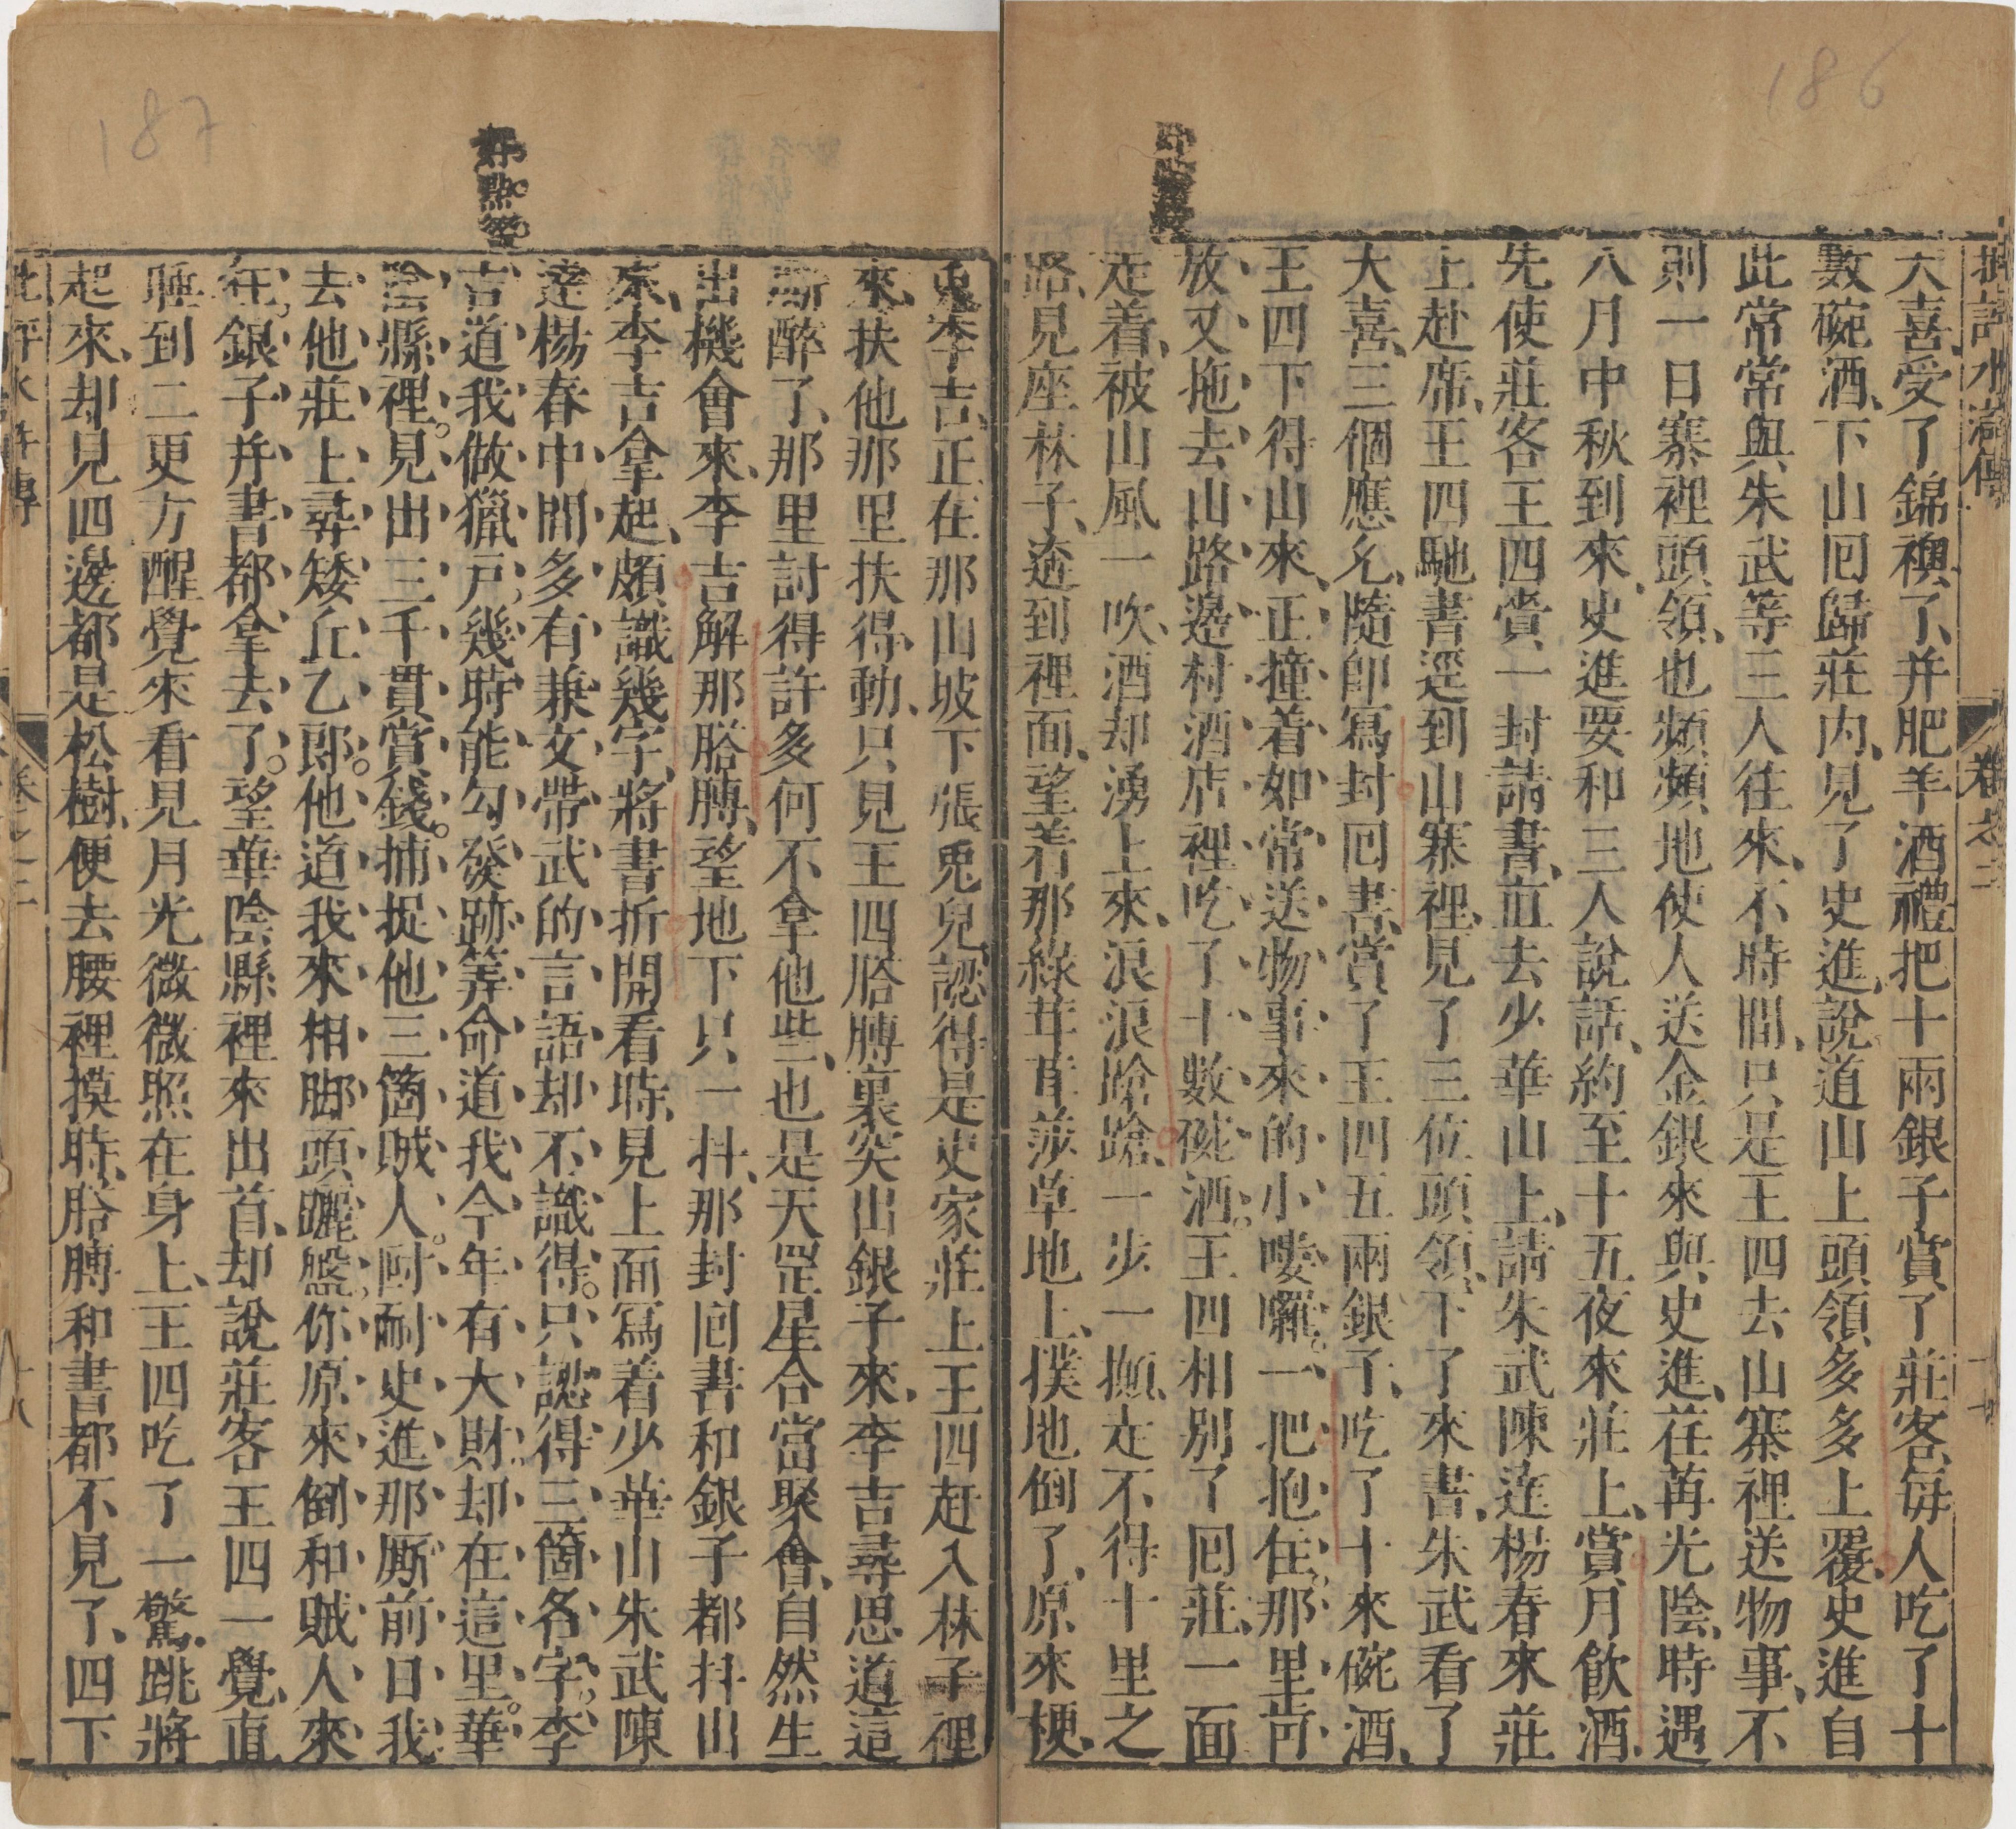 186
批評水滸傳
卷之二
大喜、受了錦襖了、并肥羊酒禮把十兩銀子賞了莊客、每人吃了十
數碗酒、下山囘歸莊内、見了史進、說道山上頭領多多上覆、史進自
此常常與朱武等三人往來、不時間、只是王四去山寨裡送物事、不
則一日寨裡頭領、也頻頻地使人送金銀來與史進、荏苒光陰、時遇
八月中秋到來、史進要和三人說話、約至十五夜來莊上、賞月飲酒、
先使莊客王四賫一封請書、直去少華山上、請朱武陳達楊春來莊
上赴席、王四馳書逕到山寨裡、見了三位頭領、下了來書、朱武看了
大喜、三個應允、隨即寫封囘書、賞了王四五兩銀子、吃了十來碗酒、
王四下得山來、正撞着如常送物事來的小嘍囉。一把抱住、那里肯
放、又拖去山路邊村酒店裡吃了十數碗酒。王四相別了囘莊、一面
走着、被山風一吹、酒却湧上來、浪浪蹌蹌、一步一攧、走不得十里之
路、見座林子、逩到裡面、望着那綠茸茸莎草地上、撲地倒了、原來梗、
187
好照答
兎李吉、正在那山坡下張兎兒、認得是史家莊上王四赶入林子裡
來、扶他那里扶得動、只見王四胳膊裏突出銀子來、李吉尋思道這
厮醉了、那里討得許多何不拿他些、也是天罡星合當聚會、自然生
出機會來、李吉解那胳膊、望地下只一抖、那封囘書和銀子都抖出
來、李吉拿起、頗識幾字、將書拆開看時、見上面寫着少華山朱武陳
達楊春中間多有兼文帶武的言語却不識得。只認得三箇名字、李
吉道我做獵戸幾時能勾發跡筭命道我今年有大財却在這里。華
陰縣裡。見出三千貫賞錢。捕捉他三箇賊人。叵耐史進那厮前日我
去他莊上尋矮丘乙郎。他道我來相脚頭躧盤、你原來倒和賊人來
徃。銀子并書都拿去了。望華陰縣裡來出首、却說莊客王四一覺直
睡到二更方醒覺來看見月光微微照在身上、王四吃了一驚、跳將
起來、却見四邊都是松樹、便去腰裡摸時、胳膊和書都不見了、四下
十八